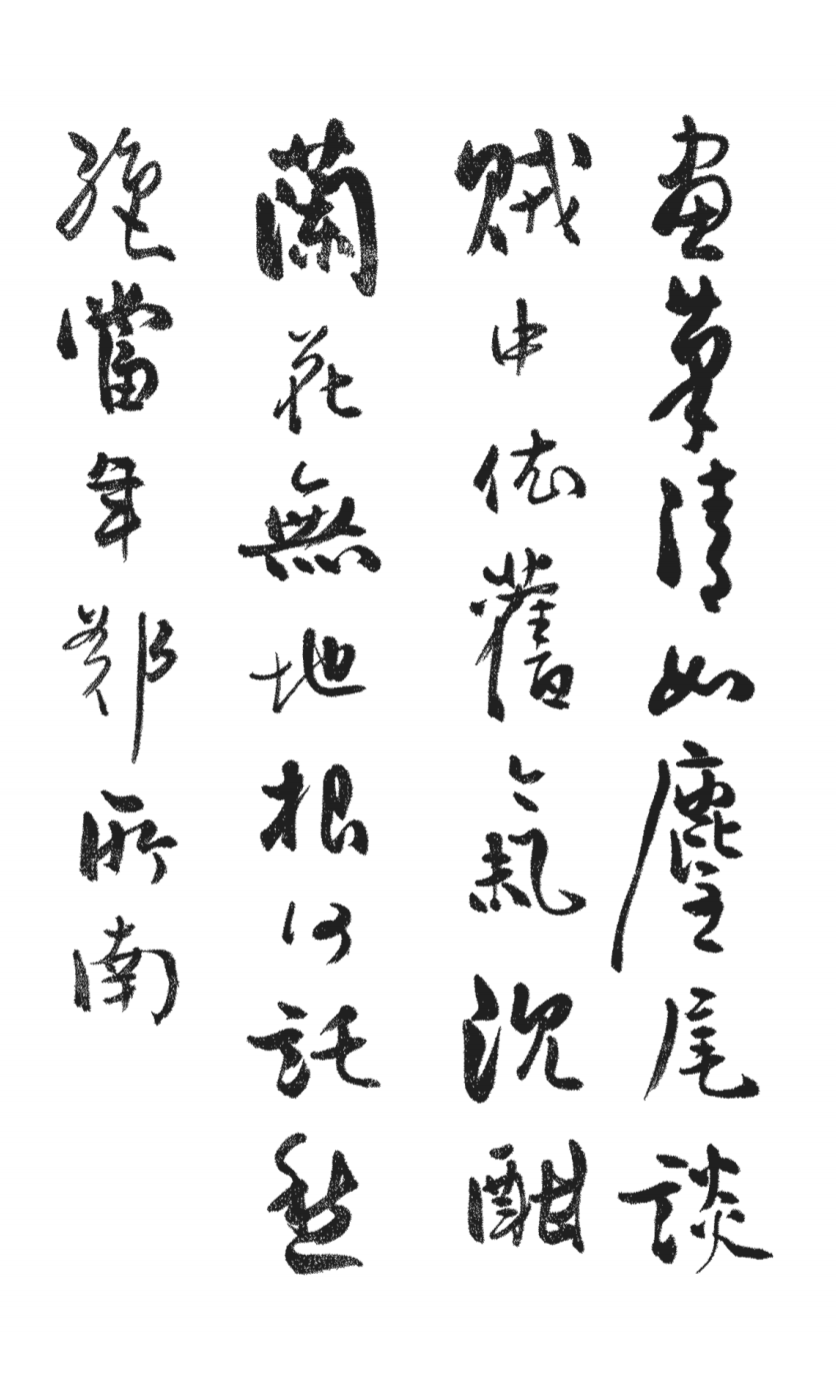 畫筆清如麈尾談
賊中依舊氣沈酣
蘭花無地根何託愁
絕當年鄭所南